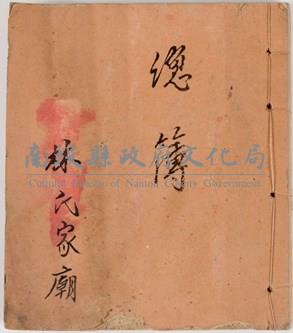 總簿
林氏家廟
南投縣政府文化局
Cultural Bureau of Nantou County Government